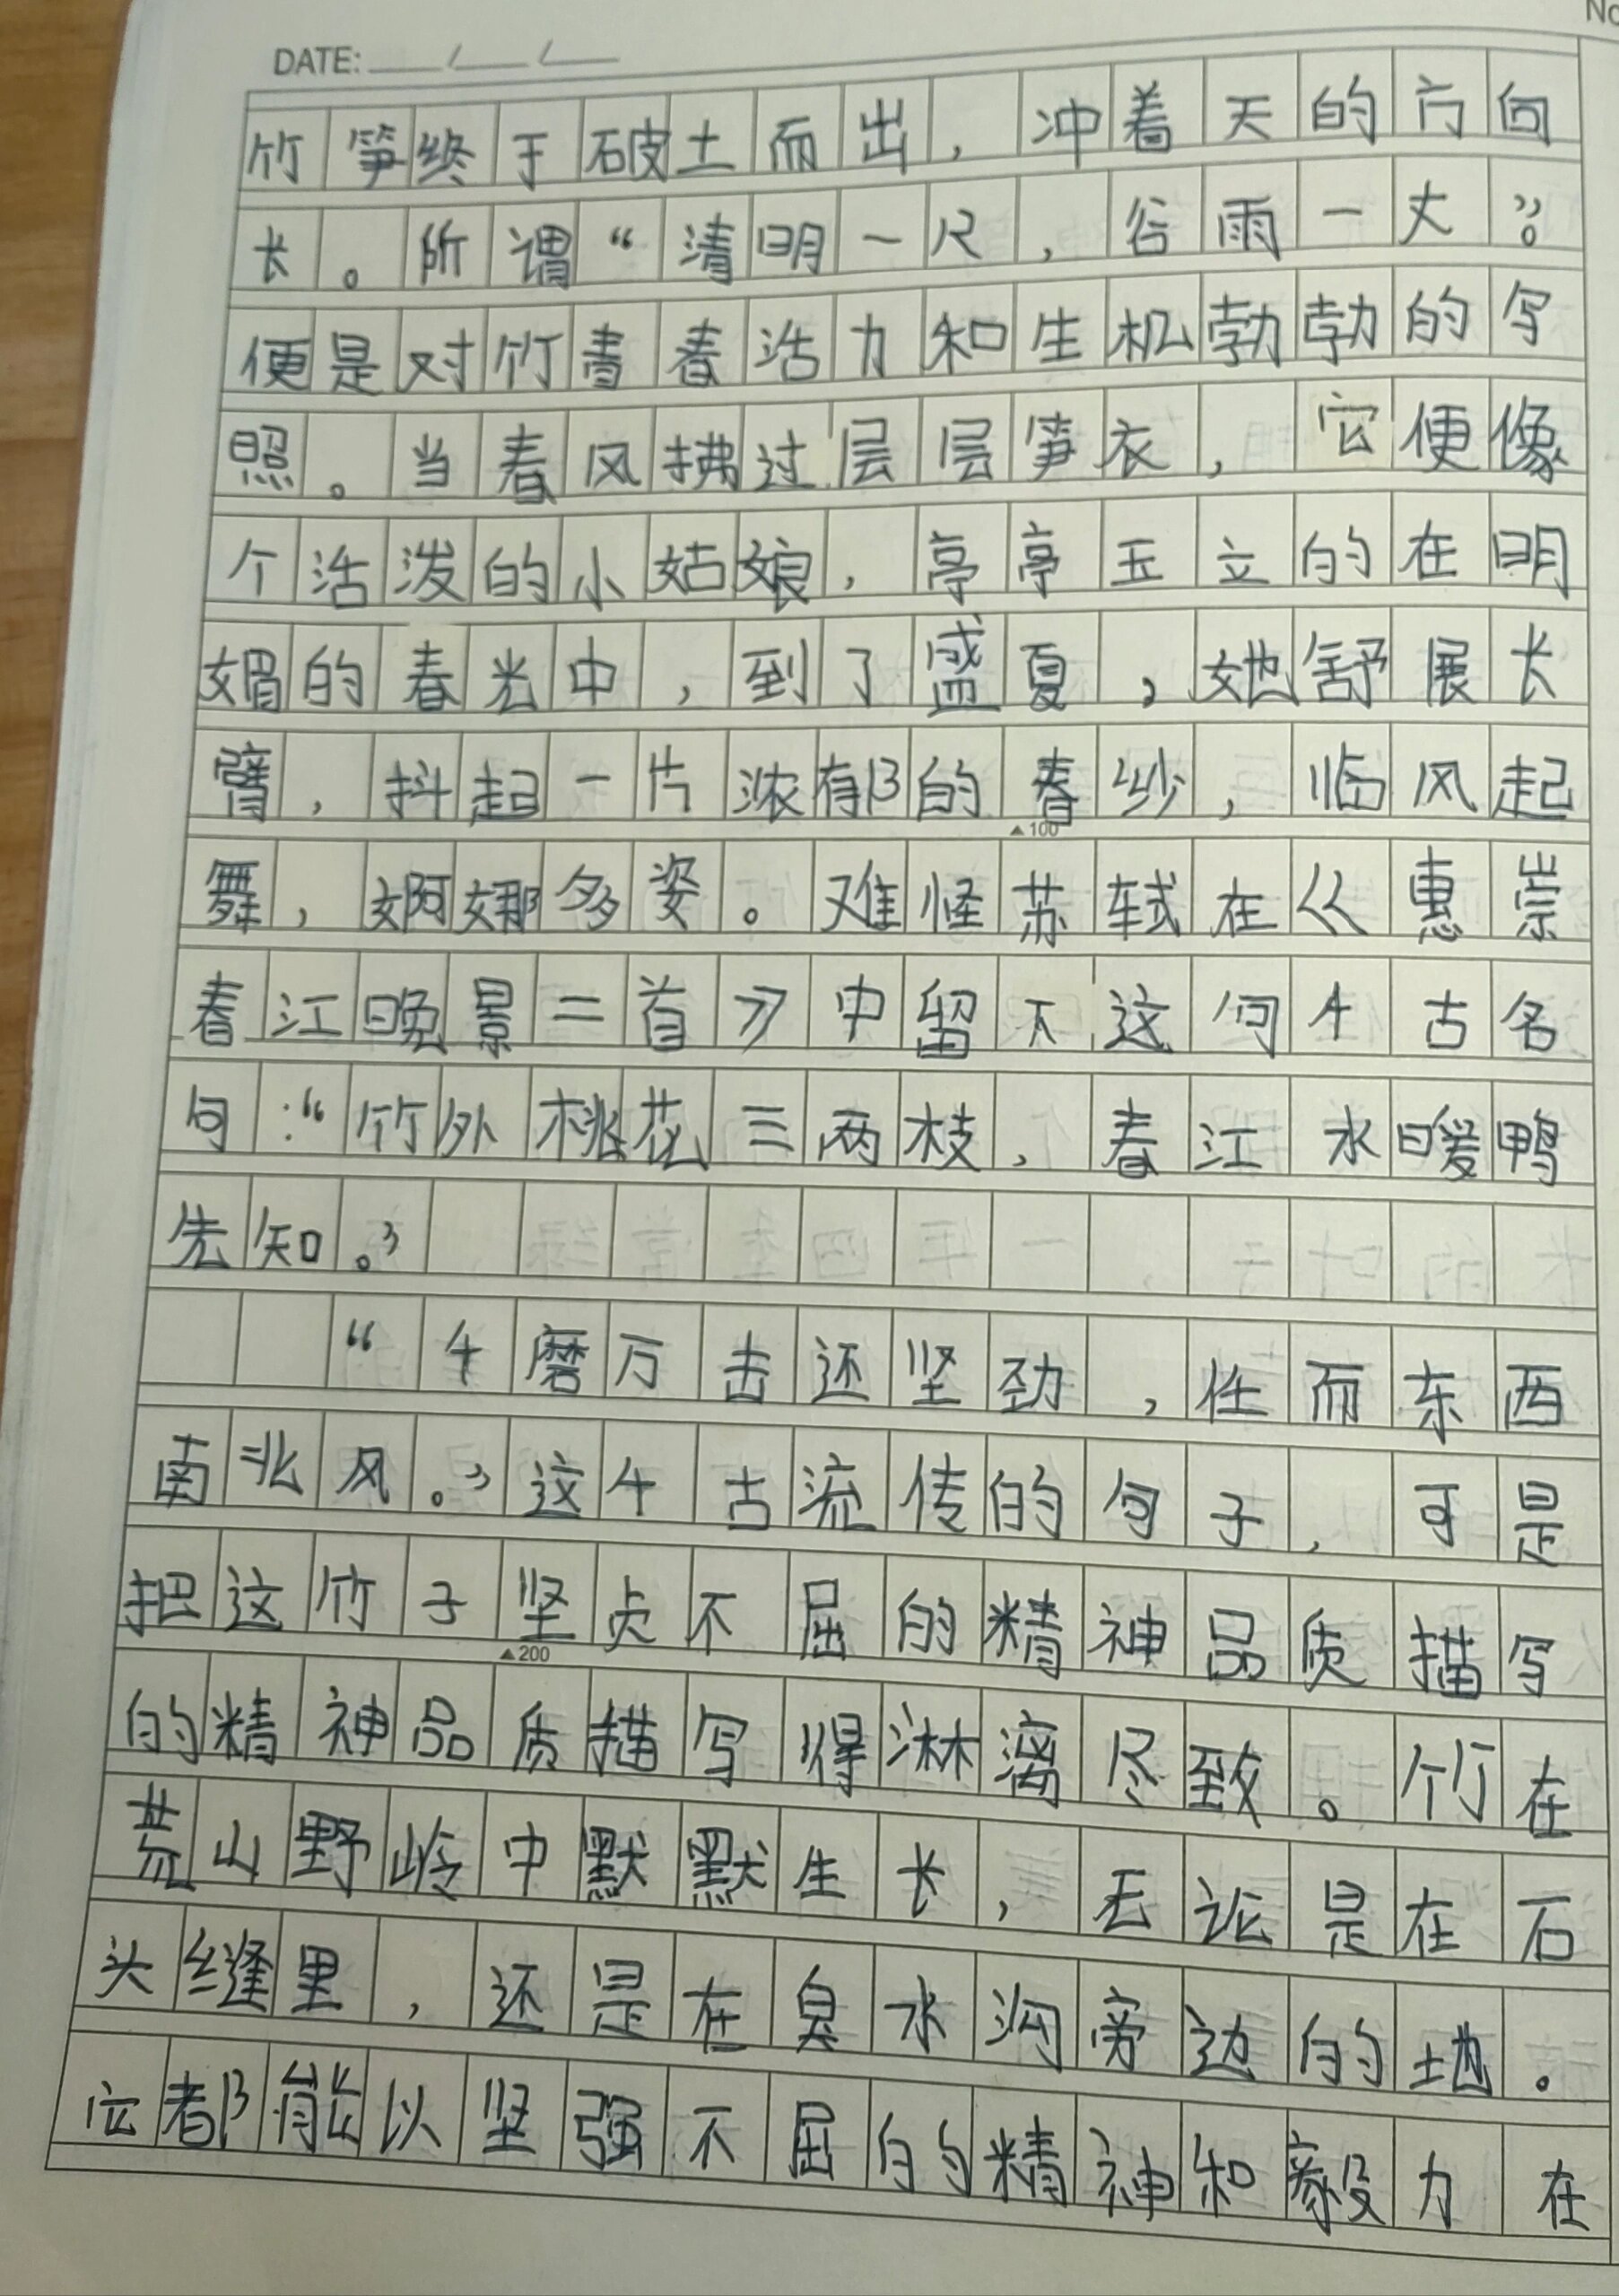 No
DATE: / /
竹笋终于破土而出，冲着天的方向
长。所谓“清明一尺，谷雨一丈”。
便是对竹青春活力和生机勃勃的写
照。当春风拂过层层笋衣，它便像
个活泼的小姑娘，亭亭玉立的在明
媚的春光中，到了盛夏，她舒展长
臂，抖起一片浓郁的春纱，临风起
▲100
舞，婀娜多姿。难怪苏轼在《惠崇
春江晚景二首》中留下这句千古名
句：“竹外桃花三两枝，春江水暖鸭
先知。”
“千磨万击还坚劲，任而东西
南北风。”这千古流传的句子，可是
把这竹子坚贞不屈的精神品质描写
▲200
的精神品质描写得淋漓尽致。竹在
荒山野岭中默默生长，无论是在石
头缝里，还是在臭水沟旁边的地。
它都能以坚强不屈的精神和毅力在